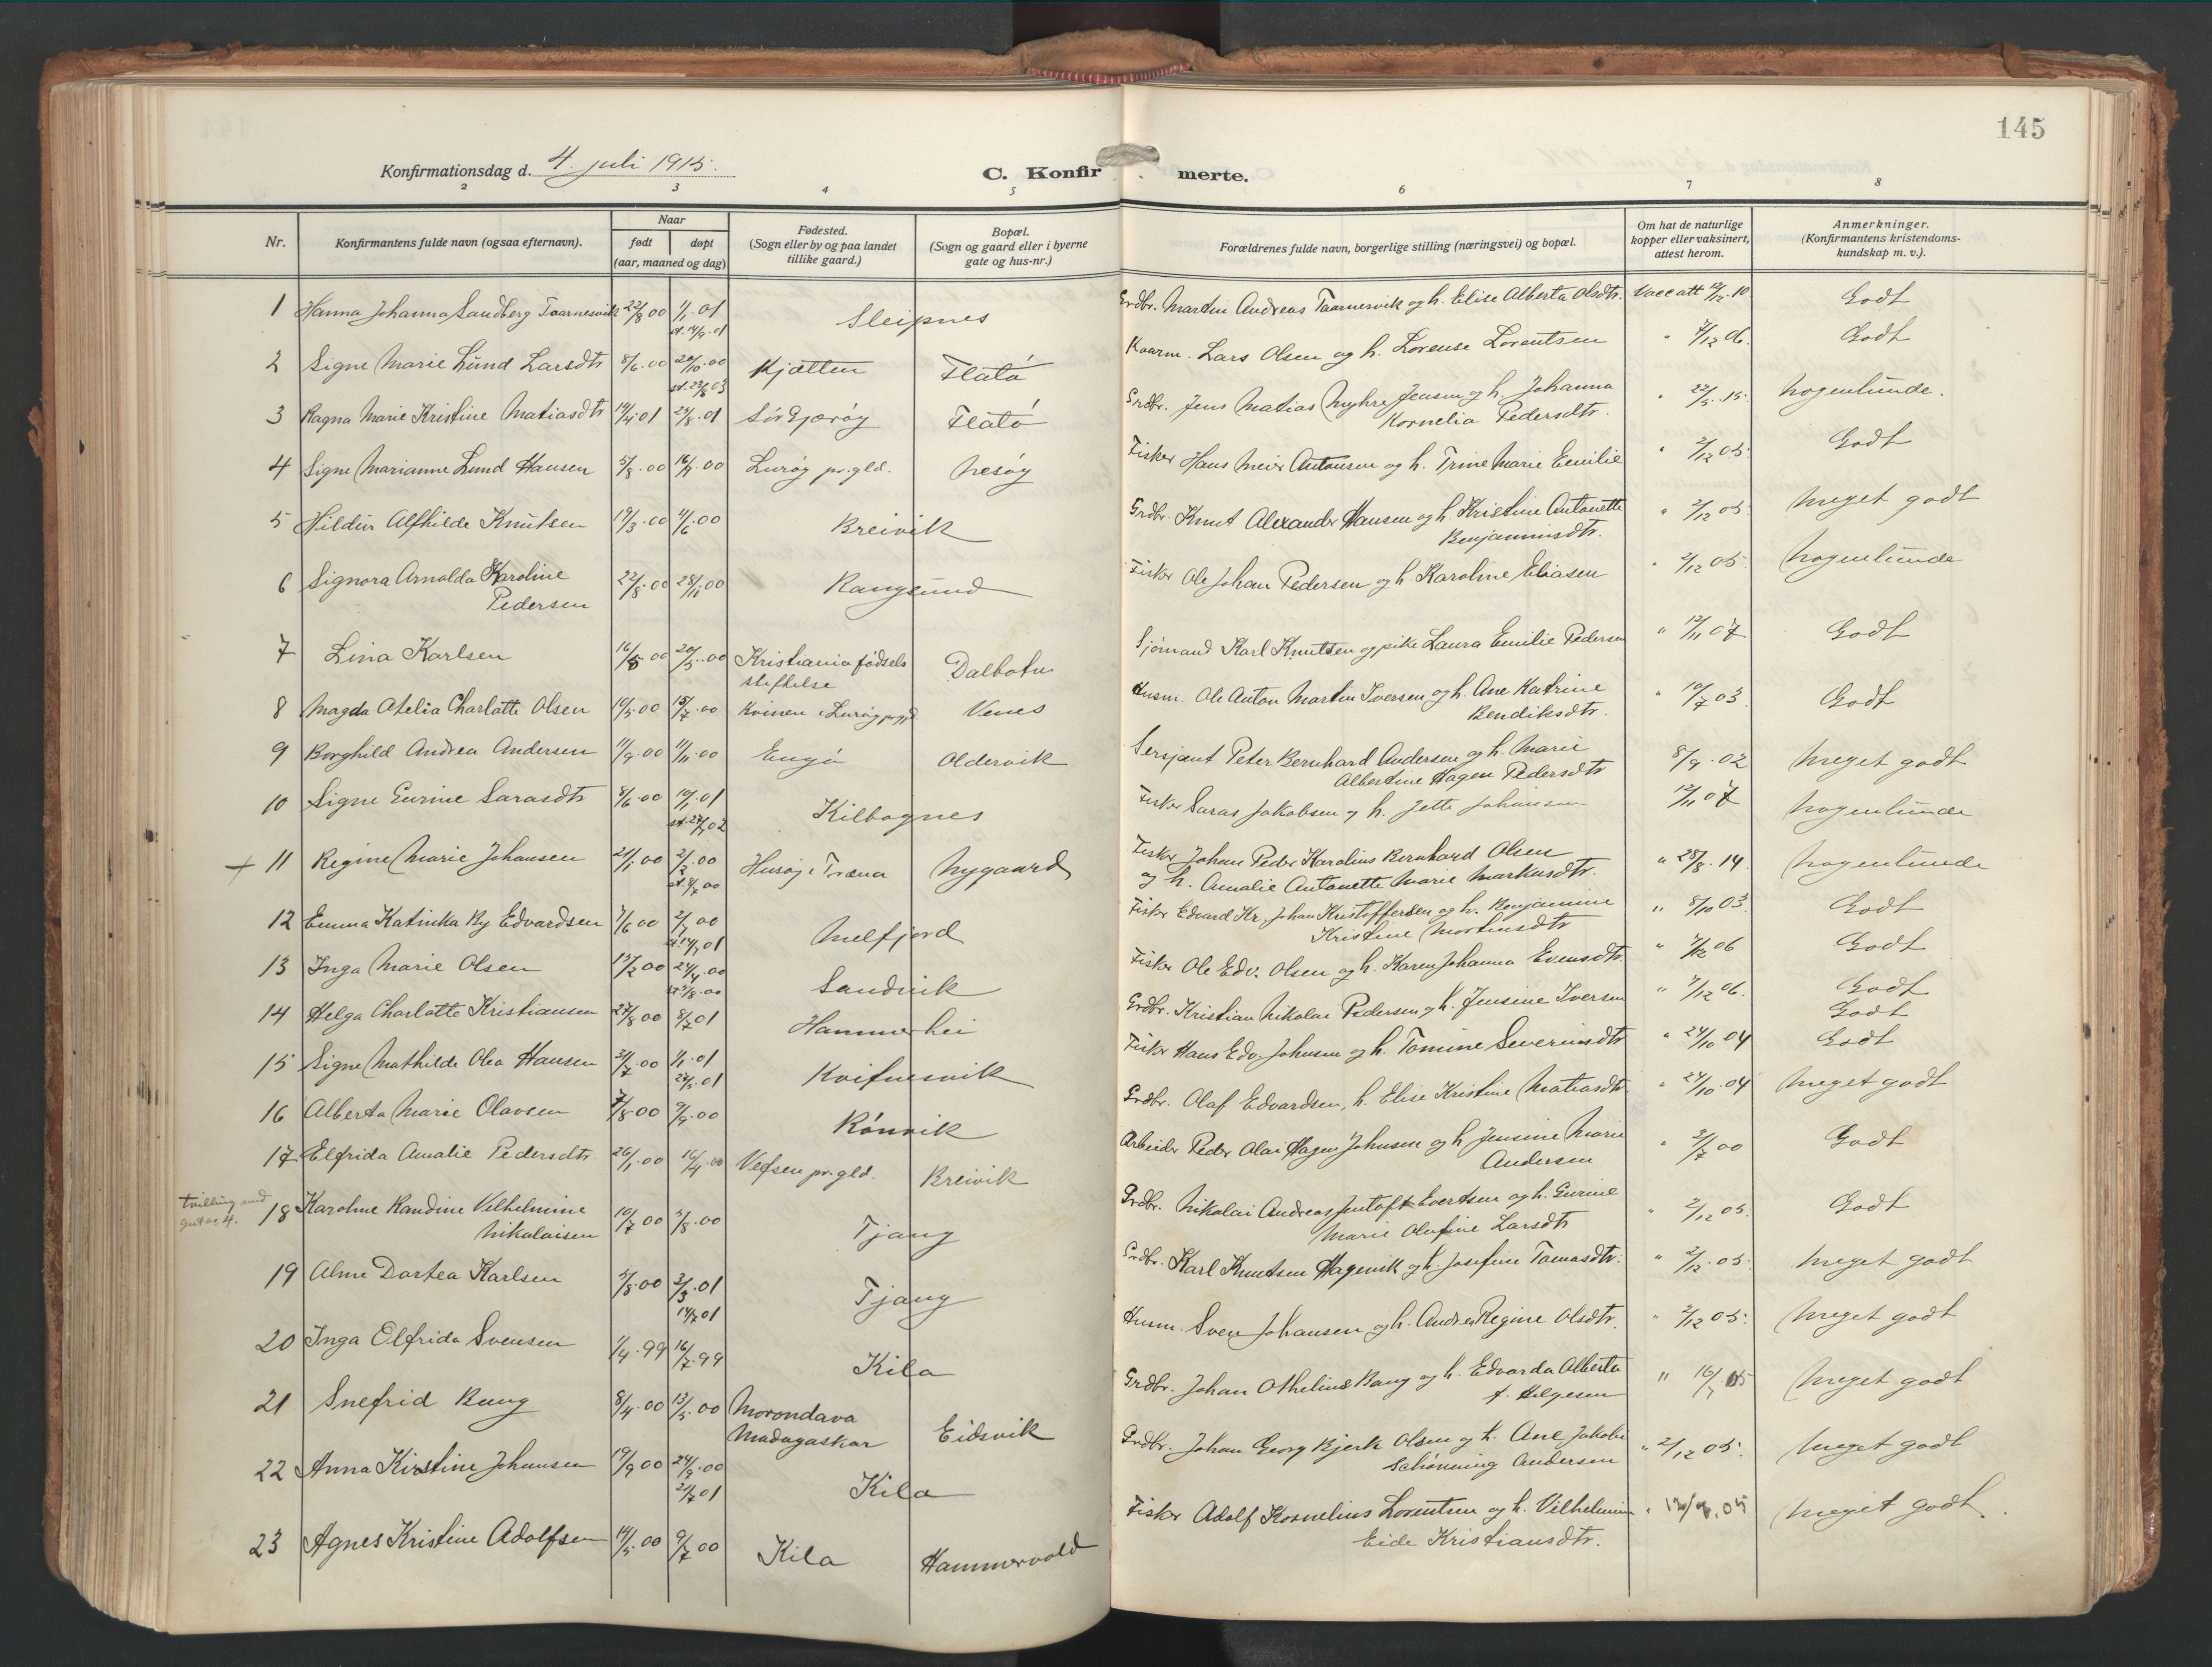 145
Konfirmationsdag d. 4. juli 1915.
C. Konfirmerte.
2 3 4 5 6 7 8
Nr.
Konfirmantens fulde navn (ogsaa efternavn).
Naar
født døpt
(aar, maaned og dag)
Fødested.
(Sogn eller by og paa landet
tillike gaard.)
Bopæl.
(Sogn og gaard eller i byerne
gate og hus-nr.)
Forældrenes fulde navn, borgerlige stilling (næringsvei) og bopæl.
Om hat de naturlige
kopper eller vaksinert,
attest herom.
Anmerkninger.
(Konfirmantens kristendoms-
kundskap m. v.).
1 Hanna Johanna Sandberg Taarnesvik 22/8 00 1/1.01 Sleipnes Grdbr. Martin Andreas Taarnesvik og h. Elise Alberta Olsdtr. Vacc att 12/12.10 Godt
2 Signe Marie Lund Larsdtr 8/6.00 20/10.00 Kjætten Flatö Kvarm. Lars Olsen og h. Lorense Lorentsen " 7/12 06. Godt
st. 23/8 03
3 Ragna Marie Kristine Matiasdtr 14/4 01 25/8.01 Sör Gjæröy Flatö Grdbr. Jens Matias Myhre Jensen og h. Johanna
Kornelia Pedersdtr. " 22/5.15. Nogenlunde.
4 Signe Marianne Lund Hansen 5/8.00 16/9.00 Luröy pr.gld. Nesöy Fisker Hans Meier Antonsen og h. Trine Marie Emilie " 2/12 05. Godt
5 Hildur Alfhilde Knutsen 19/3.00 4/6.00 Breivik Grdbr. Knut Alexander Hansen og h. Kristine Antonette
Benjaminsdtr. " 2/12 05. Meget godt
6 Signora Arnolda Karoline
Pedersen 22/8.00 28/10 00 Rangsund Fisker Ole Johan Pedersen og h. Karoline Eliasen " 2/12 05. Nogenlunde
7 Lina Karlsen 16/5 00 20/5.00 Kristiania födsels
stiftelse Dalbotn Sjömand Karl Knutsen og pike Laura Emilie Pedersen " 12/11 07 Godt
8 Magda Atelia Charlotte Olsen 10/5.00 15/7.00 Kvinen i Luröy prgjd. Venes Husm. Ole Anton Martin Iversen og h. Ane Katrine
Bendiksdtr. " 10/7 03. Godt
9 Borghild Andrea Andersen 11/9.00 11/11.00 Engö Oldervik Sersjant Peter Bernhard Andersen og h. Marie
Albertine Hagen Pedersdtr 8/9.02 Meget godt
10 Signe Gurine Sarasdtr 8/6.00 10/1.01 Kilbognes Fisker Saras Jakobsen og h. Jette Johansen 12/11 07 Nogenlunde
11 Regine Marie Johansen 21/1.00 2/2.00 Husöy i Træna Nygaard Fisker Johan Peder Karolius Bernhard Olsen
og h. Amalie Antonette Marie Markusdtr. " 28/8.14 Nogenlunde
12 Emma Katinka Ry Edvardsen 7/6 00 2/7 00 Melfjord Fisker Edvard Kr. Johan Kristoffersen og h. Benjamine
Kristine Mortensdtr " 8/10 03. Godt
13 Inga Marie Olsen 15/2 00 24/4.00 Sandvik Fisker Ole Edv. Olsen og h. Karen Johanna Evensdtr. " 7/12 06 Godt
st 5/8.00
14 Helga Charlotte Kristiansen 27/8 00 8/7 01 Hammerhei Grdbr. Kristian Nikolai Pedersen og h. Jensine Iversen " 7/12 06. Godt
Godt
15 Signe Mathilde Olea Hansen 31/7.00 1/1.01 Kvitnesvik Fisker Hans Edv. Johnsen og h. Tomine Severinsdtr " 24/10 04 Godt
16 Alberta Marie Olavsen 7/8.00 9/9.00 Rönvik Grdbr. Olaf Edvardsen, h. Elise Kristine Matiasdtr. " 24/10.04 Meget godt
17 Elfrida Amalie Pedersdtr. 26/1.00 16/4.00 Vefsen pr.gld. Breivik Arbeider Peder Olai Hagen Johnsen og h. Jensine Marie
Andersen " 2/7 00 Godt
tvilling med
gut nr. 4.
18 Karoline Randine Vilhelmine
Nikolaisen 10/7 00 5/8.00 Tjang Grdbr. Nikolai Andreas Jentoft Evertsen og h. Gurine
Marie Olufine Larsdtr " 2/12 05. Godt
19 Alma Dortea Karlsen 5/8.00 3/3.01 Tjang Grdbr. Karl Knutsen Hagenvik og h. Josefine Tomasdtr. " 2/12.05. Meget godt
20 Inga Elfrida Svensen 1/4.99 16/7.99 Kila Husm. Sven Johansen og h. Andrea Regine Olsdtr. " 2/12 05. Meget godt
21 Snefrid Bang 8/4.00 13/5.00 Morondava
Madagaskar Eidsvik Grdbr. Johan Othelius Bang og h. Edvarda Alberta
f. Helgesen " 16/7 05 Meget godt
22 Anna Kirstine Johansen 19/9 00 24/9.00 Kila Grdbr. Johan Georg Bjerk Olsen og h. Ane Jakobi
Schönning Andersen " 2/12 05. Meget godt
2/7 01
23 Agnes Kristine Adolfsen 14/5.00 9/7 00 Kila Hammervold Fisker Adolf Kornelius Lorentsen og h. Vilhelmine
Eide Kristiansdtr. Meget godt